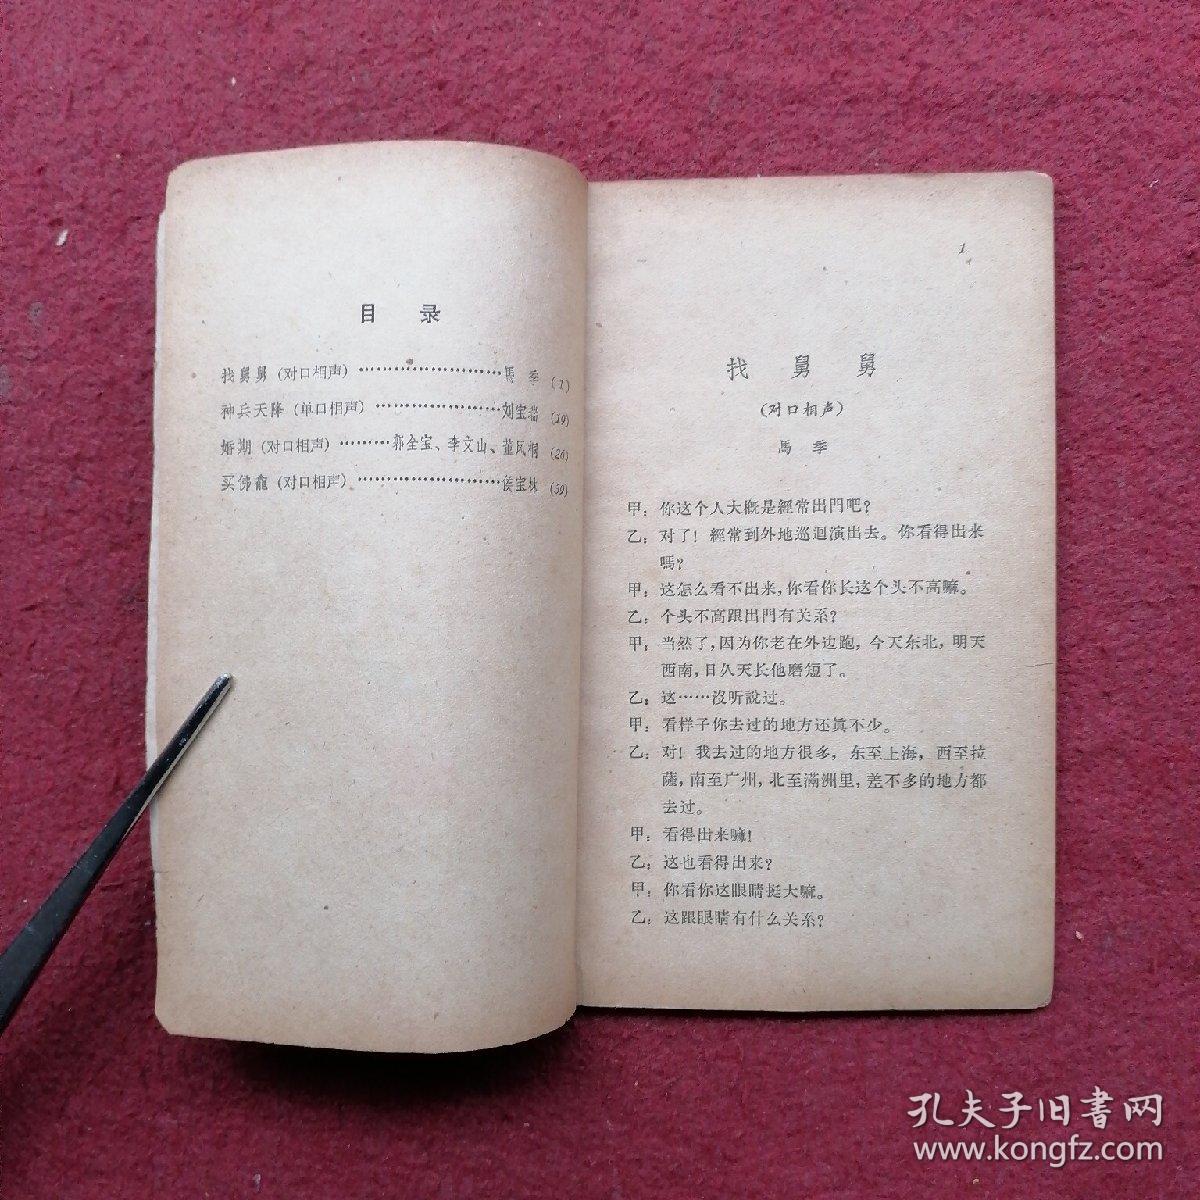 目录
找舅舅(对口相声)························馬季(1)
神兵天降(单口相声)··················刘宝瑞(19)
婚期(对口相声)·········郭全宝、李文山、董凤桐(26)
买佛龕(对口相声)························侯宝林(39)
1
找舅舅
(对口相声)
馬季
甲：你这个人大概是經常出門吧?
乙：对了！經常到外地巡迴演出去。你看得出来
嗎?
甲：这怎么看不出来，你看你长这个头不高嘛。
乙：个头不高跟出門有关系?
甲：当然了，因为你老在外边跑，今天东北，明天
西南，日久天长他磨短了。
乙：这……沒听說过。
甲：看样子你去过的地方还眞不少。
乙：对！我去过的地方很多，东至上海，西至拉
薩，南至广州，北至滿洲里，差不多的地方都
去过。
甲：看得出来嘛！
乙：这也看得出来?
甲：你看你这眼睛挺大嘛。
乙：这跟眼睛有什么关系?
孔夫子旧書网
www.kongfz.com